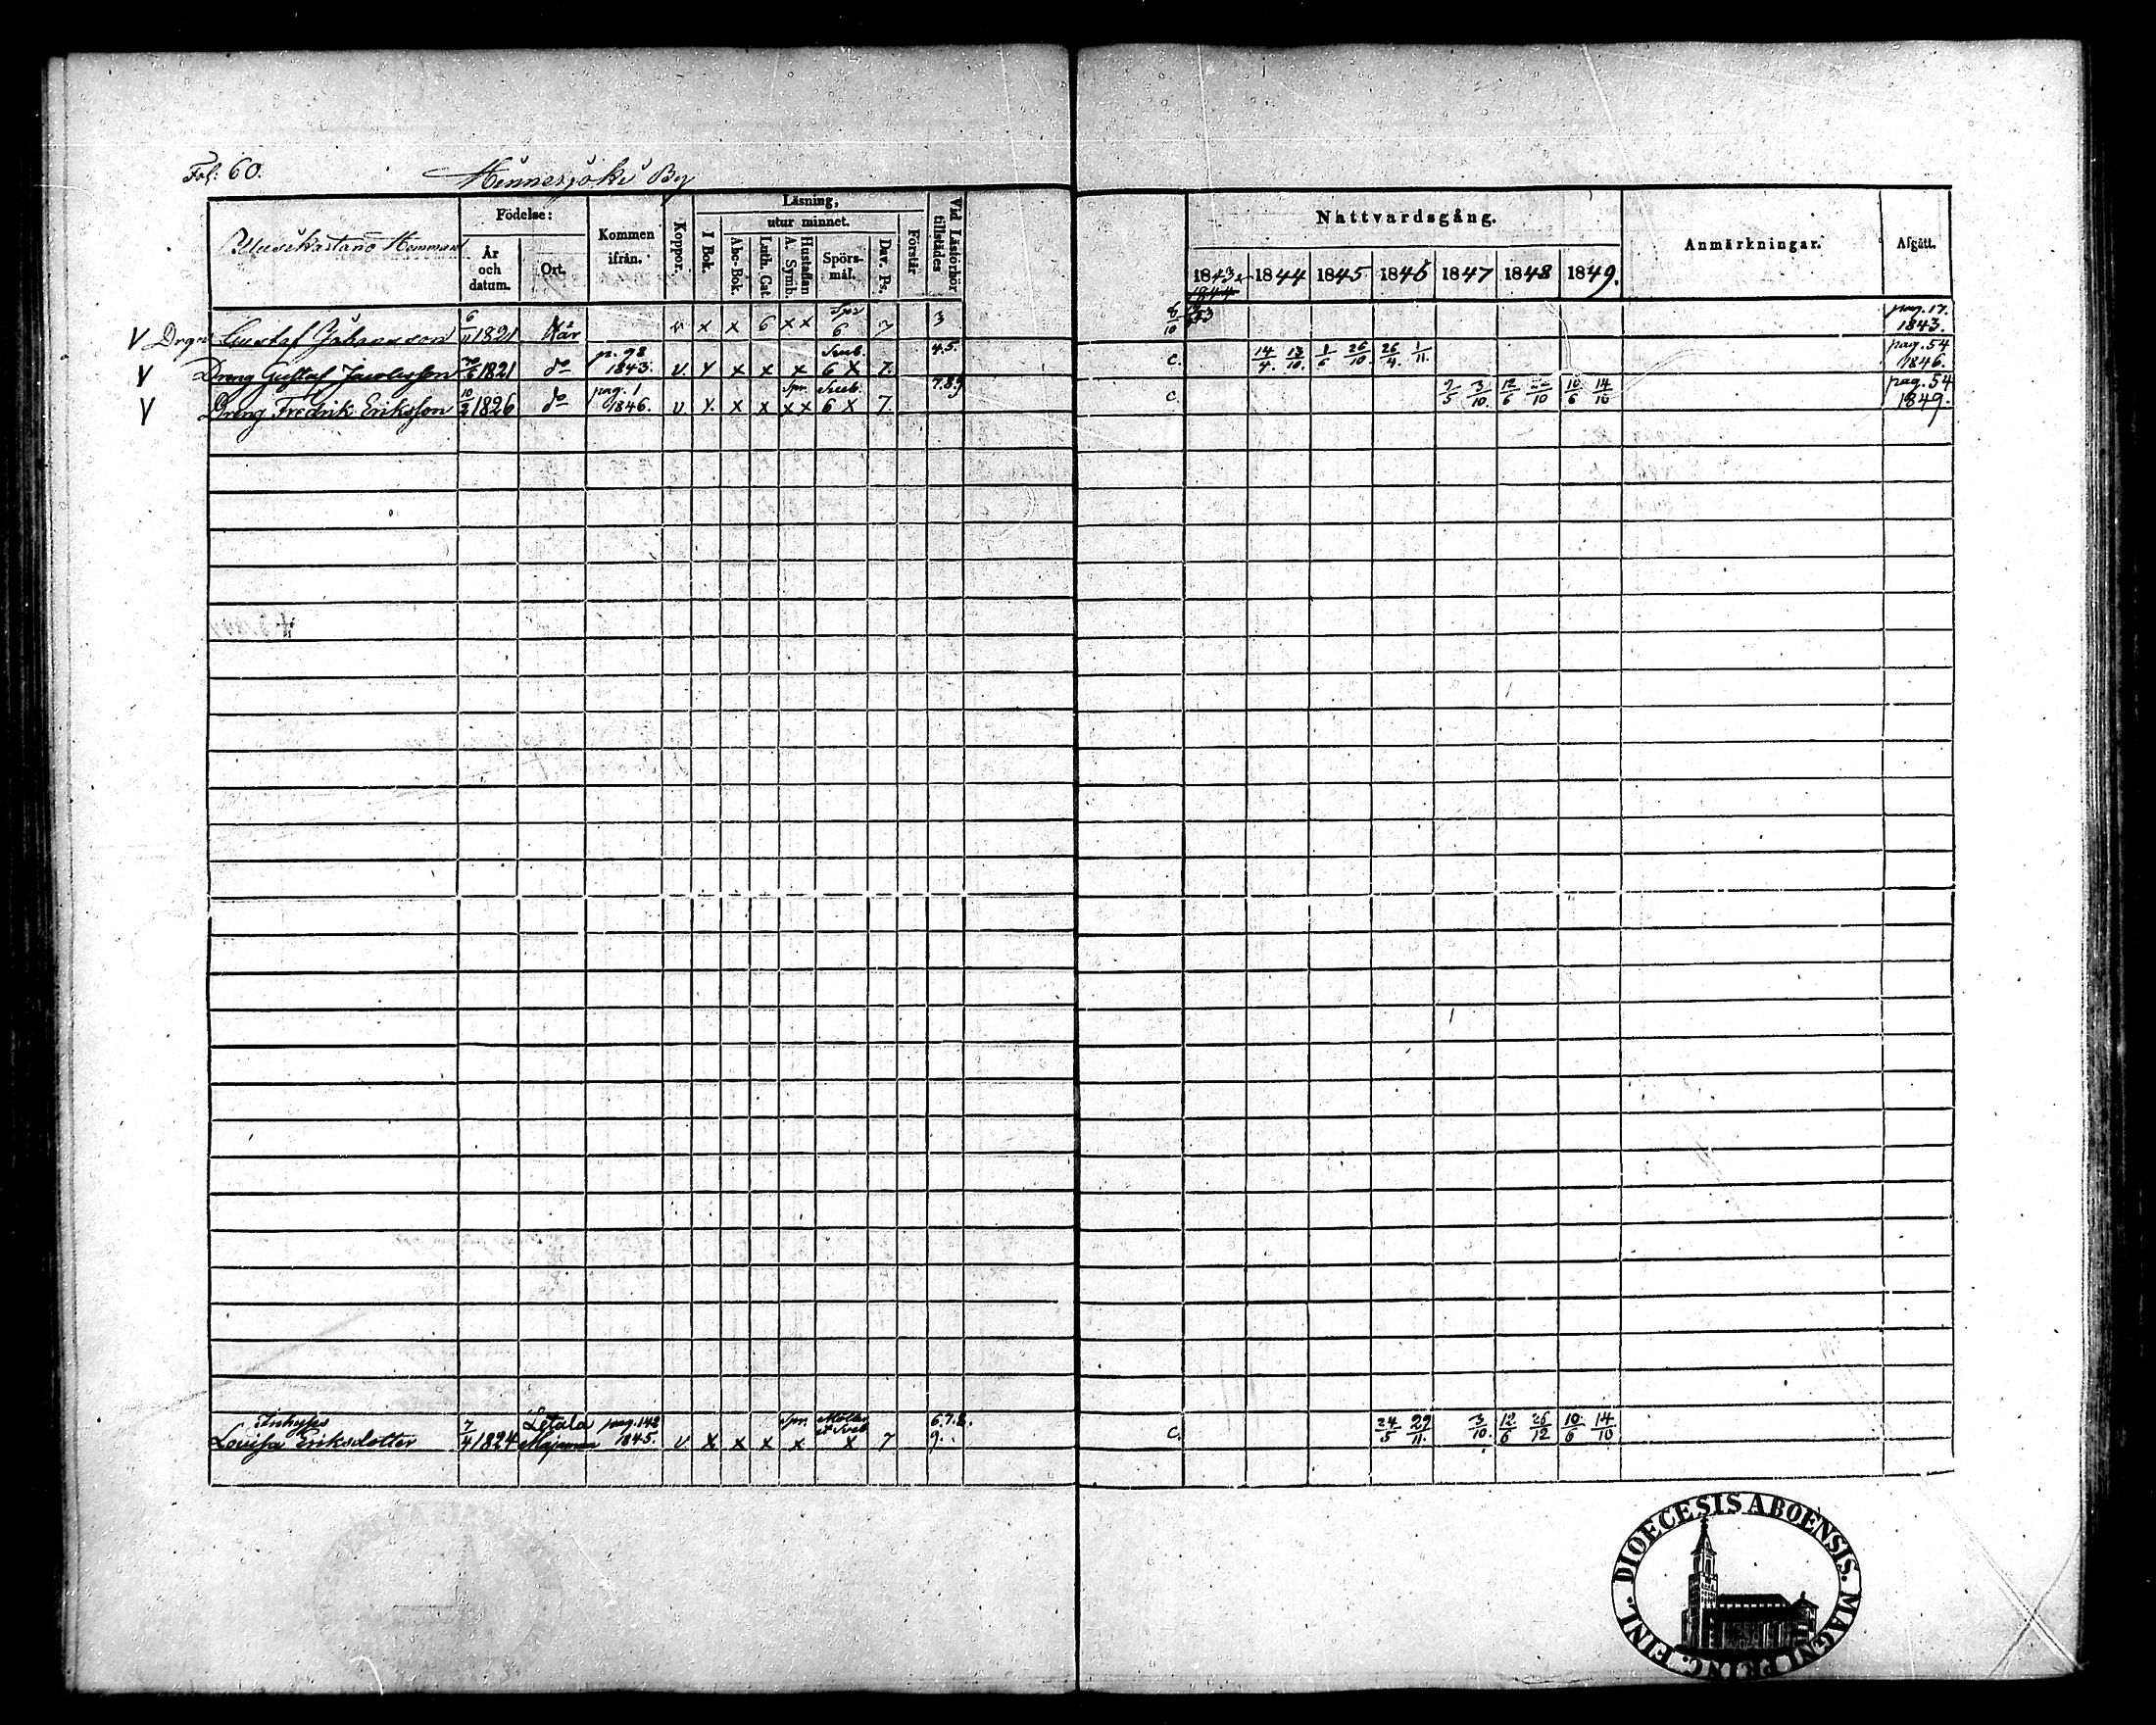 Fol: 60.
Hinnerjoki By
Uusikartano Hemman
Födelse:
År och datum.
Ort.
Kommen ifrån.
Koppor.
Läsning,
I Bok.
utur minnet.
Abc-Bok.
Luth. Cat.
Hustaflan A. Symb.
Spörs-mål.
Dav. Ps.
Förstår
Vid Läsförhör tillstädes
Nattvardsgång.
1843 1844 1845 1846 1847 1848 1849.
Anmärkningar.
Afgått.
V Drgn Gustaf Johansson 6/11 1821 Här v x x 6 x x Spr 6 7 3 8/10 pag. 17. 1843.
V Dreng Gustaf Jacobsson 1821 do p. 98 1843. v. x x x x Sveb. 6 x 7. 4.5. c. 14/4. 13/10. 1/6 26/10 26/4. 1/11. pag. 54 1846.
V Dreng Fredrik Eriksson 10/3 1826 do pag. 1 1846. v x. x x Spr. x x Sveb. 6 x 7. 7.8.9 c. 2/5 3/10. 12/6 10 10/6 14/10 pag. 54 1849.
Inhyses
Lovisa Eriksdotter 7/4 1824 Letala pag. 148 1845. v x x x Spr. x Möller et Sveb x 7 6.7.8. 9. c. 24/5 29/11. 3/10. 12/6 26/12 10/6 14/10
DIOECESIS ABOENSIS. MAGNI PRINC. FINL.